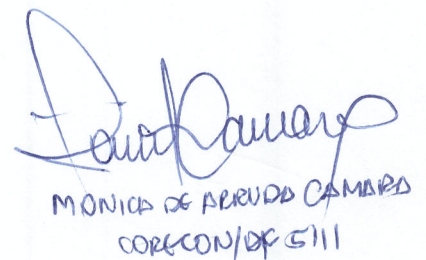 MONICA DE ARRUDA CAMARA
CORECON/DF 5111